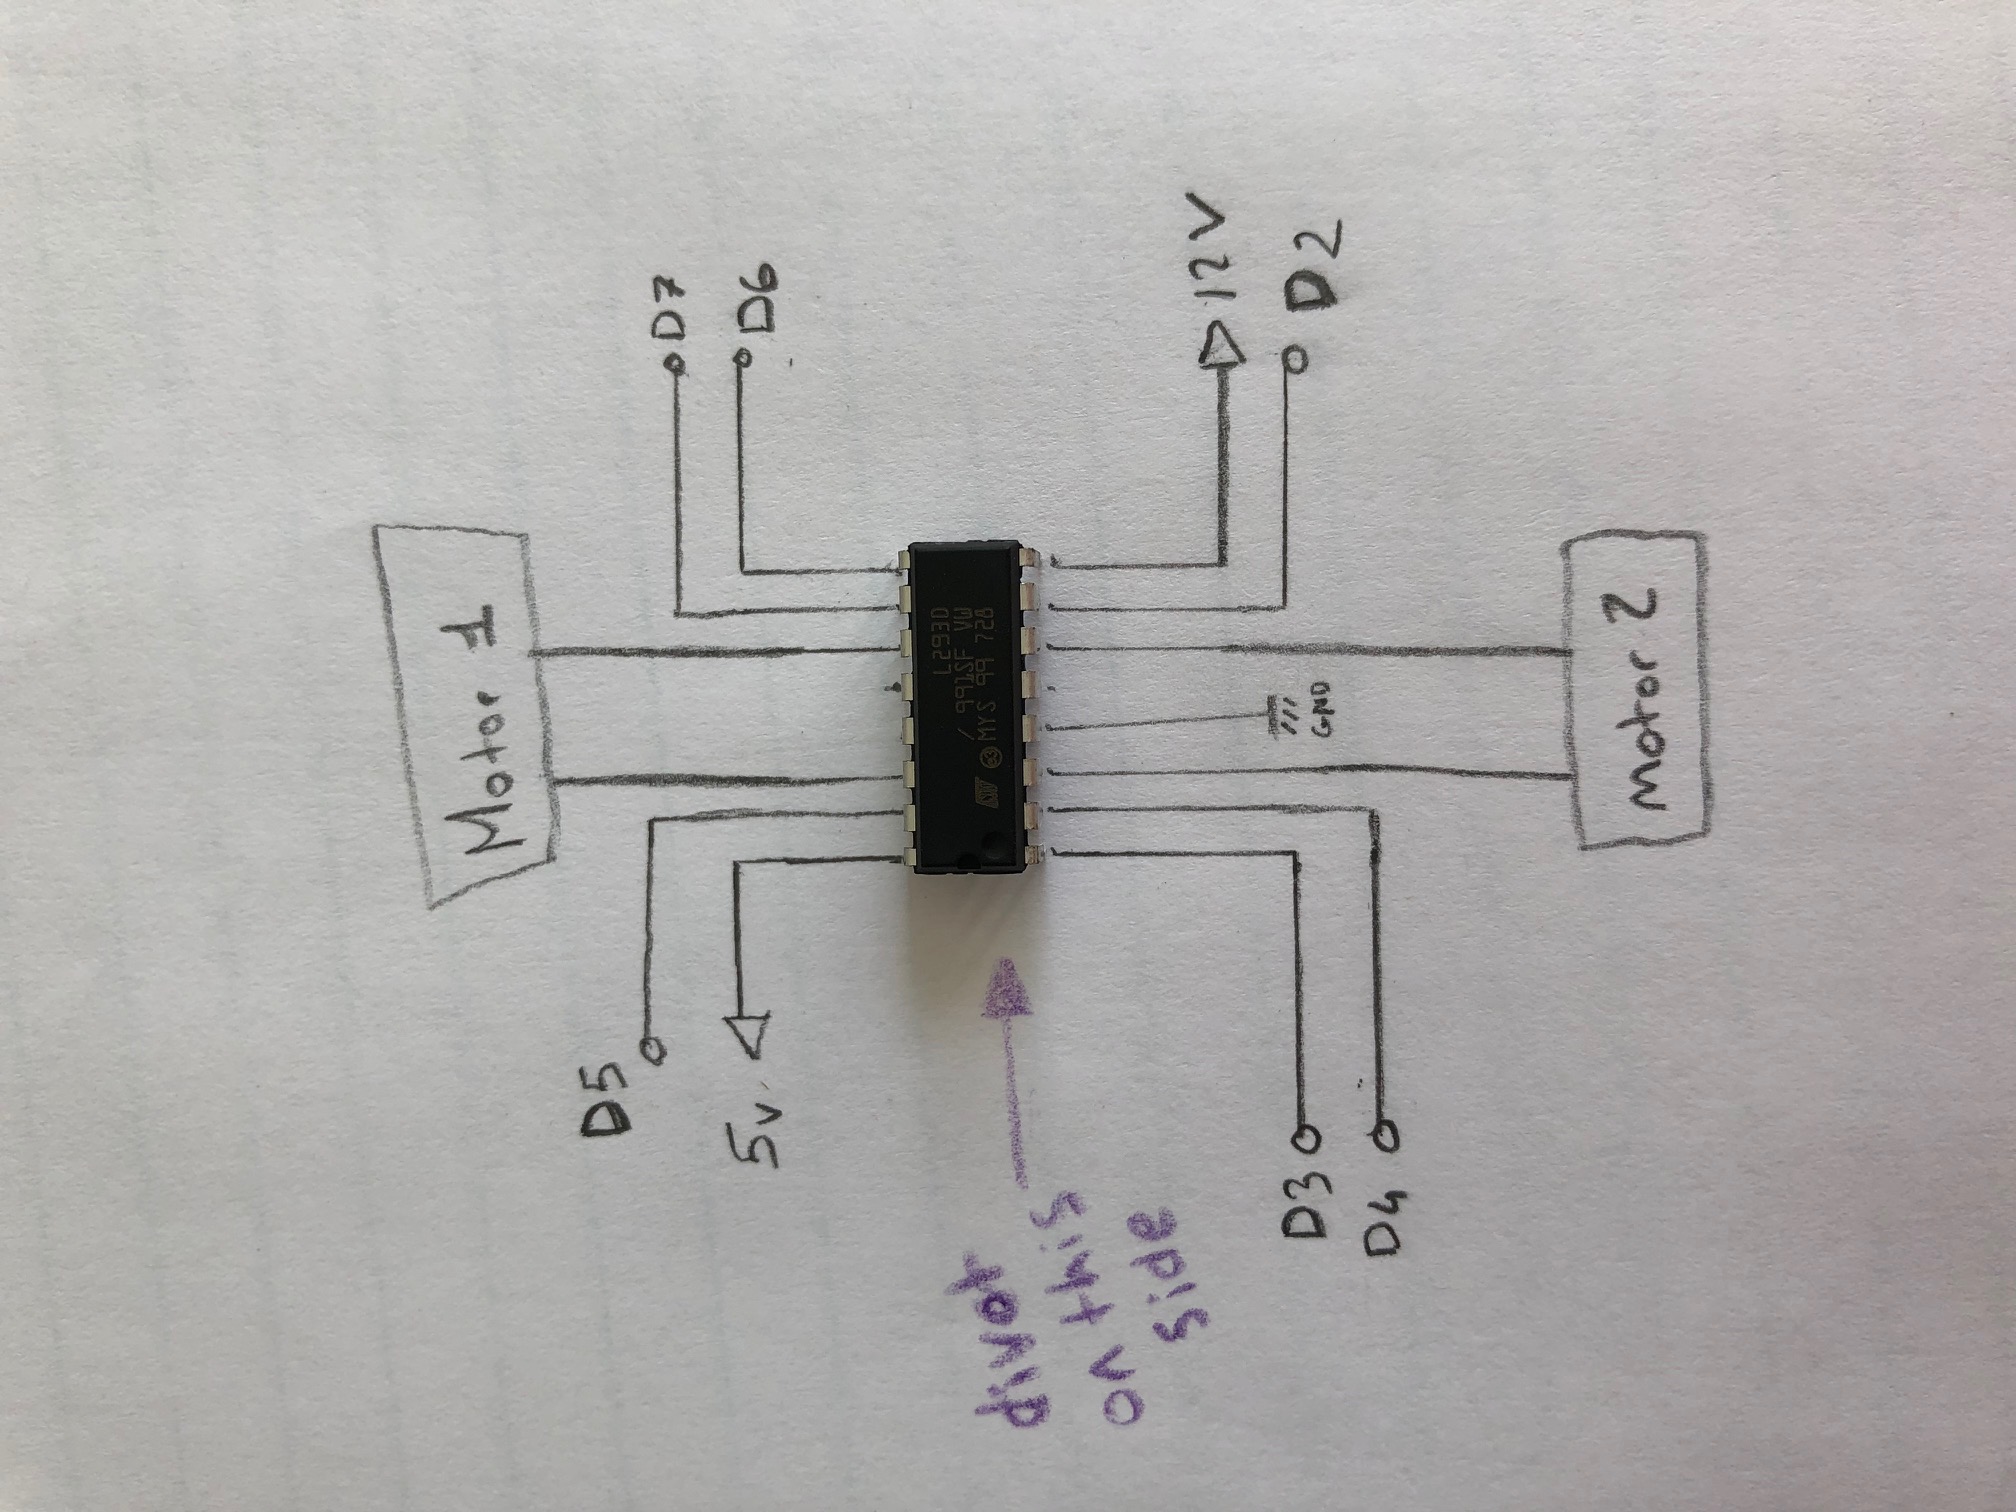 Motor 1
D5
D7
5v
D6
L293D
991SF VW
e3 MYS 99 728
divot
on this
side
12V
D3
GND
D2
D4
motor 2